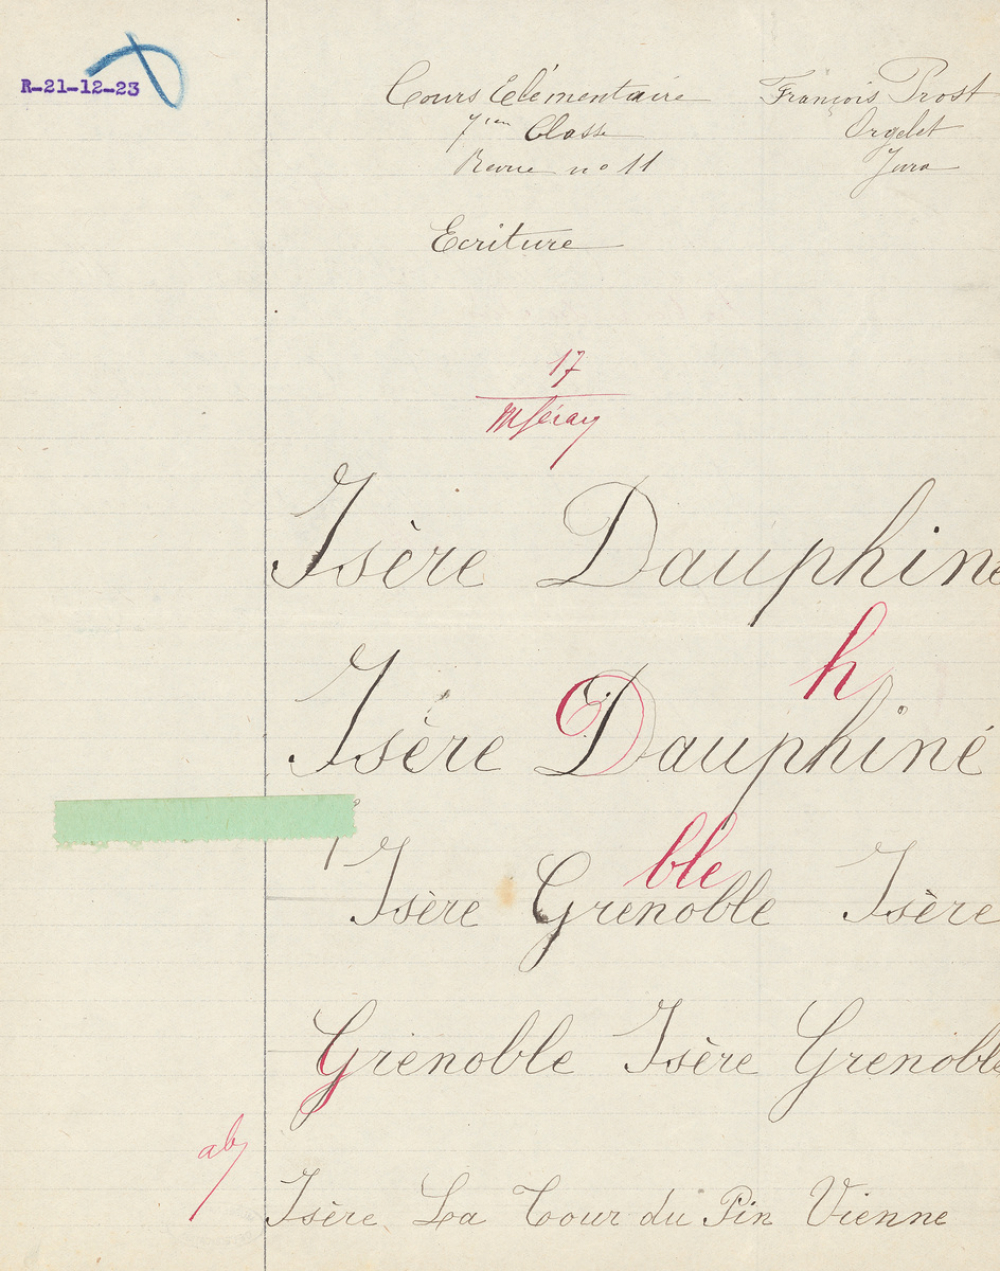 R-21-12-23
Cours Elémentaire François Prost
7ième Classe Orgelet
Revue no 11 Jura
Ecriture
17
Isère Dauphiné
h
Isère Dauphiné
D
ble
Isère Grenoble Isère
Grenoble Isère Grenoble
Isère La Tour du Pin Vienne